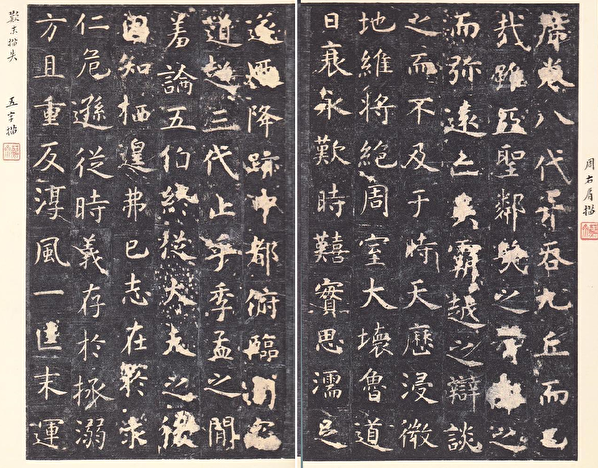 周右肩損
席卷八代并吞九丘而已
哉雖亞聖鄰幾之之
而彌遠亡吳霸越之辯談
之而不及于時天歷浸微
地維將絕周室大壞魯道
日衰永歎時囏實思濡足
遂迺降跡中都俯臨司寇
道超三代止乎季孟之閒
羞論五伯終從大夫之後
固知栖遑弗已志在於求
仁危遜從時義存於拯溺
方且重反淳風一匡末運
五字損